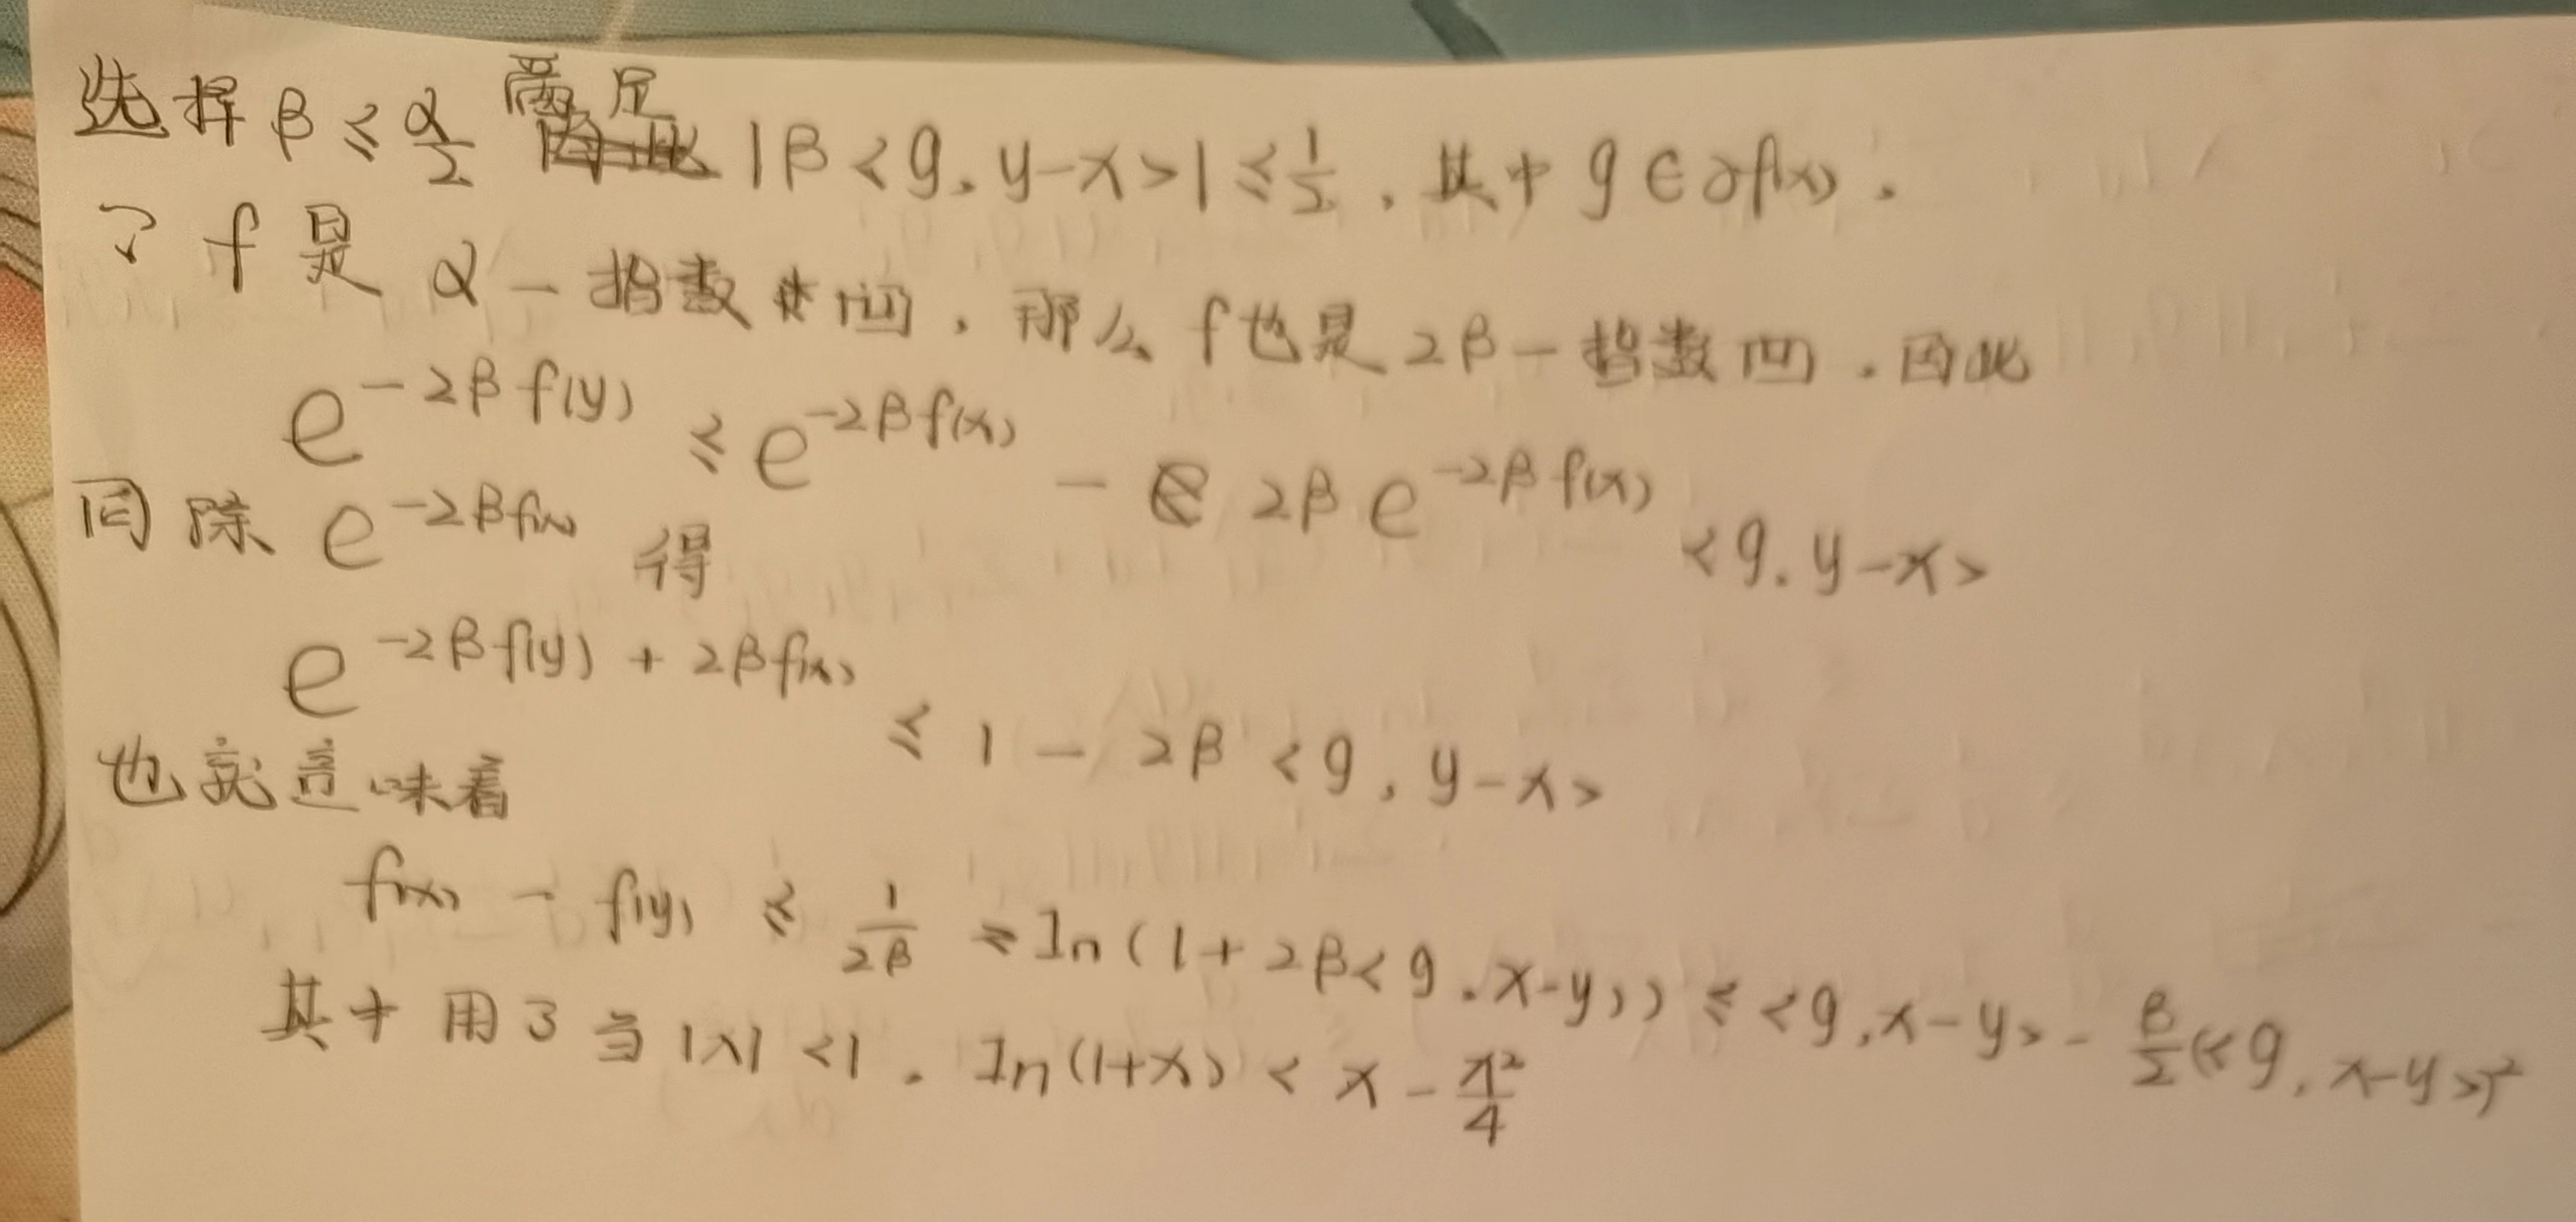 选择 β ≤ α/2 满足 |β<g, y-x>| ≤ 1/2, 其中 g ∈ ∂f(x).
f 是 α - 指数凹, 那么 f 也是 2β - 指数凹. 因此
e^{-2βf(y)} ≤ e^{-2βf(x)} - 2β e^{-2βf(x)} <g, y-x>
同除 e^{-2βf(x)} 得
e^{-2βf(y) + 2βf(x)} ≤ 1 - 2β <g, y-x>
也就意味着
f(x) - f(y) ≤ 1/2β ln(1 + 2β<g, x-y>) ≤ <g, x-y> - β/2 (<g, x-y>)²
其中用了当 |x| < 1. ln(1+x) < x - x²/4